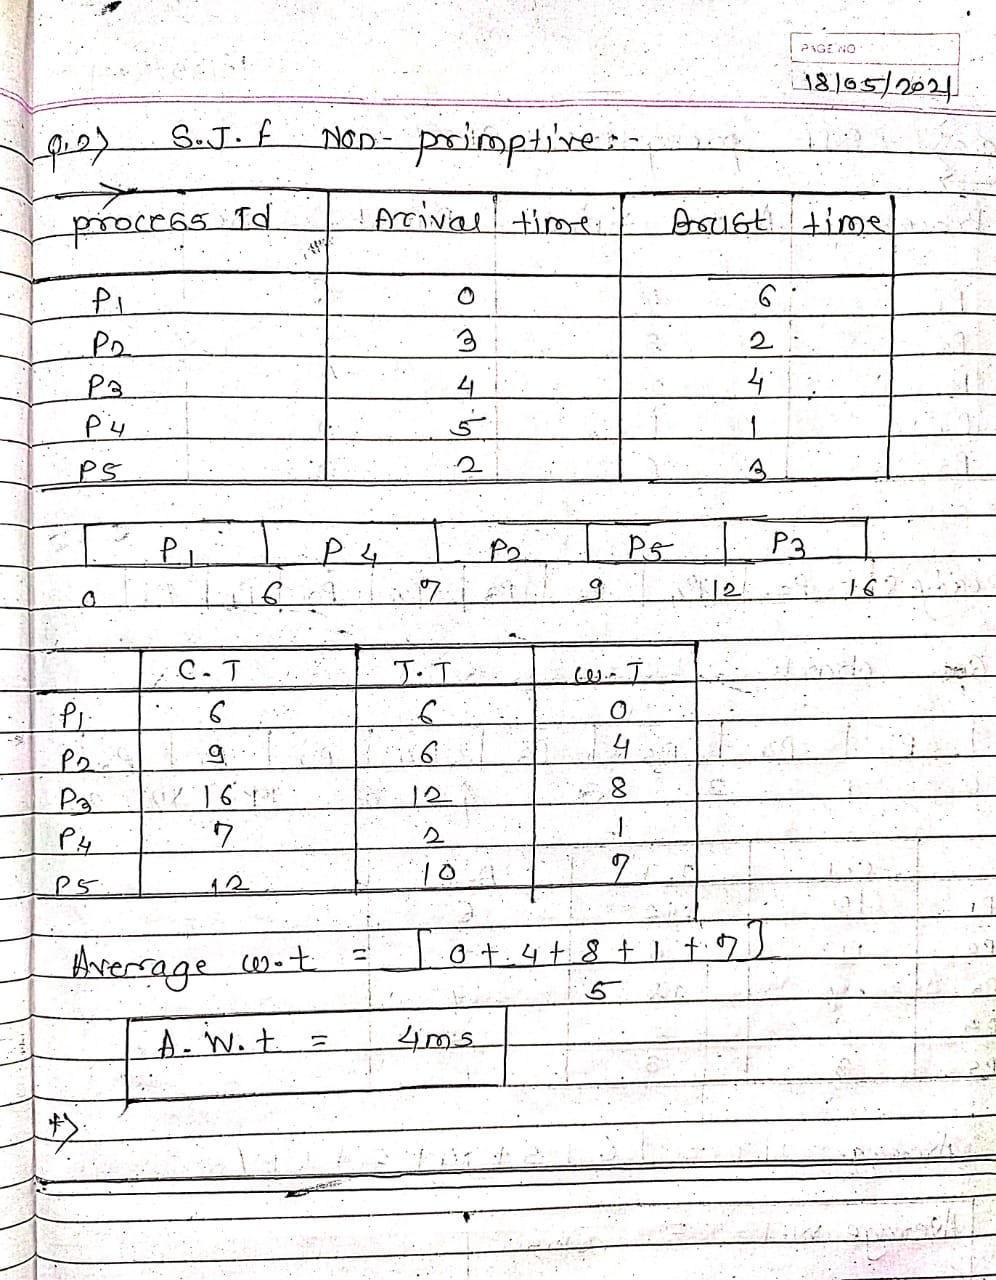 PAGE NO
18/05/2021
Q.2) S.J.f Non-primptive:-
process Id Arival time Brust time
P1 0 6
P2 3 2
P3 4 4
P4 5 1
P5 2 3
P1 P4 P2 P5 P3
0 6 7 9 12 16
C.T T.T W.T
P1 6 6 0
P2 9 6 4
P3 16 12 8
P4 7 2 1
P5 12 10 7
Average w.t = [0+4+8+1+7]
5
A.W.t = 4ms
*)